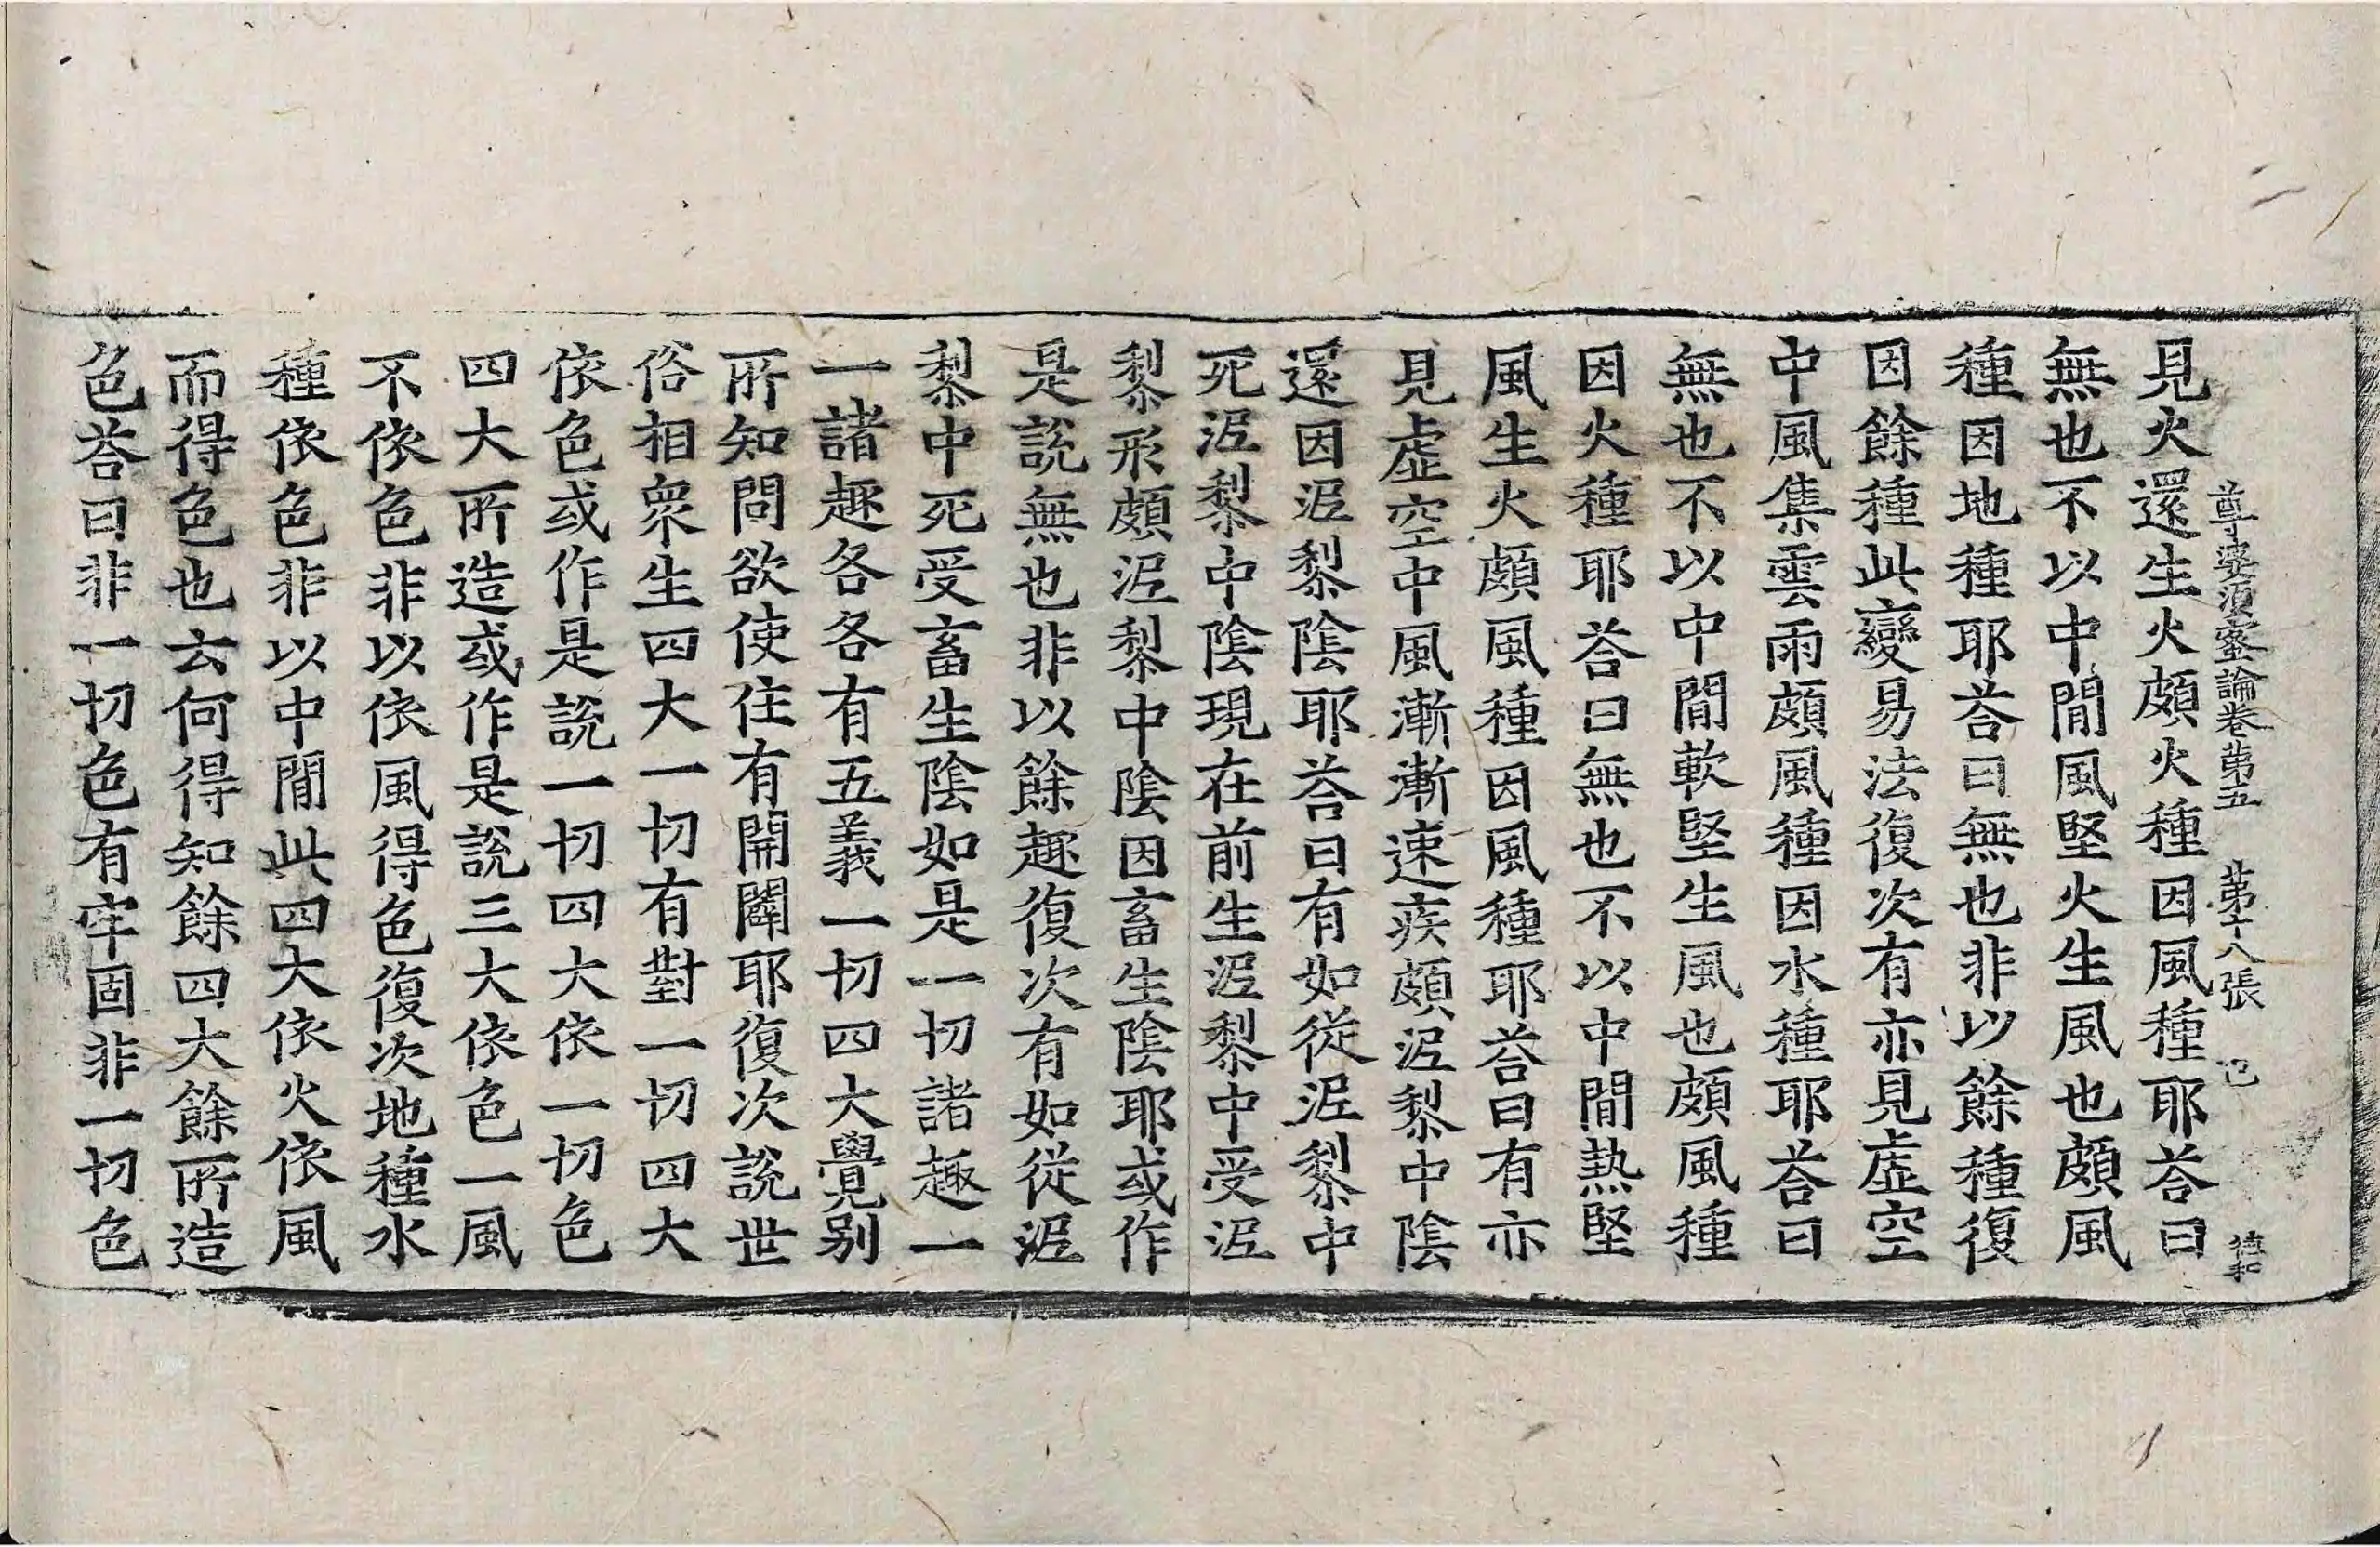 尊婆須蜜論卷第五 第十八張
見火還生火頗火種因風種耶荅曰
無也不以中閒風堅火生風也頗風
種因地種耶荅曰無也非以餘種復
因餘種此變易法復次有亦見虛空
中風集雲雨頗風種因水種耶荅曰
無也不以中閒軟堅生風也頗風種
因火種耶荅曰無也不以中閒熱堅
風生火頗風種因風種耶荅曰有亦
見虛空中風漸漸速疾頗泥黎中陰
還因泥黎陰耶荅曰有如從泥黎中
死泥黎中陰現在前生泥黎中受泥
黎形頗泥黎中陰因畜生陰耶或作
是說無也非以餘趣復次有如從泥
黎中死受畜生陰如是一切諸趣一
一諸趣各各有五義一切四大覺别
所知問欲使住有開闢耶復次說世
俗相衆生四大一切有對一切四大
依色或作是說一切四大依一切色
四大所造或作是說三大依色一風
不依色非以依風得色復次地種水
種依色非以中閒此四大依火依風
而得色也云何得知餘四大餘所造
色荅曰非一切色有牢固非一切色